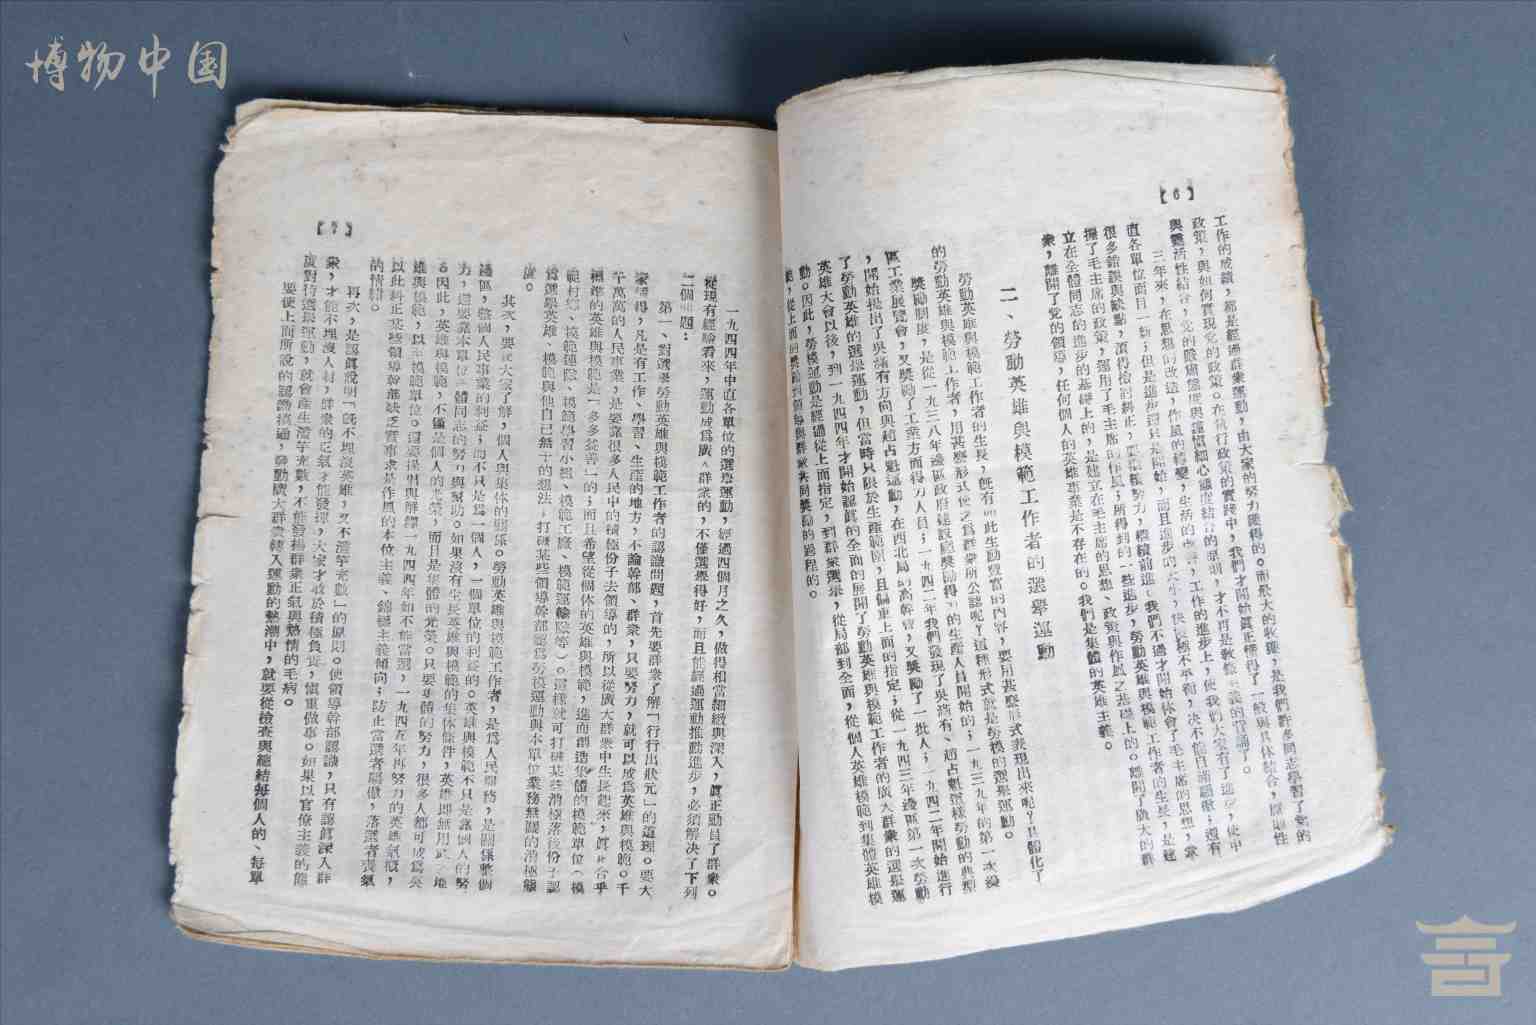 博物中国
【6】
工作的成績，都是經過群衆運動，由大家的努力獲得的。而最大的收獲，是我們許多同志學習了黨的
政策，與如何實現黨的政策。在執行政策的實踐中，我們才開始眞正懂得了一般與具体結合，原則性
與靈活性結合，党的嚴肅態度與謹愼細心態度結合的原則，才不再是敎條主義的背誦了。
三年來，在思想的改造，作風的轉變，生活的改善，工作的進步上，使我們大家有了進步，使中
直各單位面目一新；但是進步還只是開始，而且進步的大小，快慢極不平衡，决不能自滿驕傲；還有
很多錯誤與缺點，須得檢討糾正，要積極努力，繼續前進。我們不過才開始体會了毛主席的思想，掌
握了毛主席的政策，運用了毛主席的作風；所得到的一些進步，勞動英雄與模範工作者的生長，是建
立在全體同志的進步的基礎上的，是建立在毛主席的思想、政策與作風之基礎上的。離開了廣大的群
衆，離開了党的領導，任何個人的英雄事業是不存在的。我們是集體的英雄主義。
二、勞動英雄與模範工作者的選舉運動
勞動英雄與模範工作者的生長，旣有如此生動豐富的內容，要用甚麽形式表現出來呢？具體化了
的勞動英雄與模範工作者，用甚麽形式使之爲群衆所公認呢？這種形式就是勞模的選舉運動。
獎勵制度，是從一九三八年邊區政府建設廳獎勵得力的生產人員開始的；一九三九年的第一次邊
區工業展覽會，又獎勵了工業方面得力人員；一九四二年我們發現了吳滿有、趙占魁這樣勞動的典型
，開始提出了吳滿有方向與趙占魁運動，在西北局的高幹會，又獎勵了一批人；一九四二年開始進行
了勞動英雄的選舉運動，但當時只限於生產範圍，且偏重上面的指定；從一九四三年邊區第一次勞動
英雄大會以後，到一九四四年才開始認眞的全面的展開了勞動英雄與模範工作者的廣大群衆的選舉運
動。因此，勞模運動是經過從上面指定，到群衆選舉，從局部到全面，從個人英雄模範到集體英雄模
範，從上面的獎勵到領導與群衆共同獎勵的過程的。
【7】
一九四四年中直各單位的選舉運動，經過四個月之久，做得相當細緻與深入，眞正動員了群衆。
從現有經驗看來，運動成爲廣大群衆的，不僅選舉得好，而且能經過運動推動進步，必須解決了下列
二個問題：
第一、對選舉勞動英雄與模範工作者的認識問題，首先要群衆了解「行行出狀元」的道理。要大
家懂得，凡是有工作、學習、生產的地方，不論幹部、群衆，只要努力，就可以成爲英雄與模範。千
千萬萬的人民事業，是要靠很多人民中的積極份子去領導的，所以從廣大群衆中生長起來，眞正合乎
標準的英雄與模範是「多多益善」的；而且希望從個体的英雄與模範，進而創造集體的模範單位（模
範村鄕、模範連隊、模範學習小組、模範工廠、模範運輸隊等）。這樣就可打破某些消極落後份子認
爲選舉英雄、模範與他自己無干的想法，打破某些領導幹部認爲勞模運動與本單位業務無關的消極態
度。
其次，要使大家了解，個人與集体的關係。勞動英雄與模範工作者，是爲人民服務，是關係整個
邊區，整個人民事業的利益；而不只是爲一個人，一個單位的利益的。英雄與模範不只是靠個人的努
力，還要靠本單位全體同志的努力與幫助。如果沒有生長英雄與模範的集体條件，英雄即無用武之地
。因此，英雄與模範，不僅是個人的光榮，而且是集體的光榮。只要集體的努力，很多人都可成爲英
雄與模範，以至模範單位。還要提倡與解釋一九四四年如不能當選，一九四五年再努力的英雄氣槪，
以此糾正某些領導幹部缺乏實事求是作風的本位主義、錦標主義傾向；防止當選者驕傲，落選者喪氣
的情緒。
再次，是認眞說明「旣不埋沒英雄，又不濫竽充數」的原則。使領導幹部認識，只有認眞深入群
衆，才能不埋沒人材，群衆的正氣才能發揮，大家才敢於積極負責，愼重做事。如果以官僚主義的態
度對待選舉運動，就會產生濫竽充數，不能發揚群衆正氣與熱情的毛病。
要使上面所說的認識搞通，發動廣大群衆轉入運動的熱潮中，就要從檢查與總結每個人的、每單